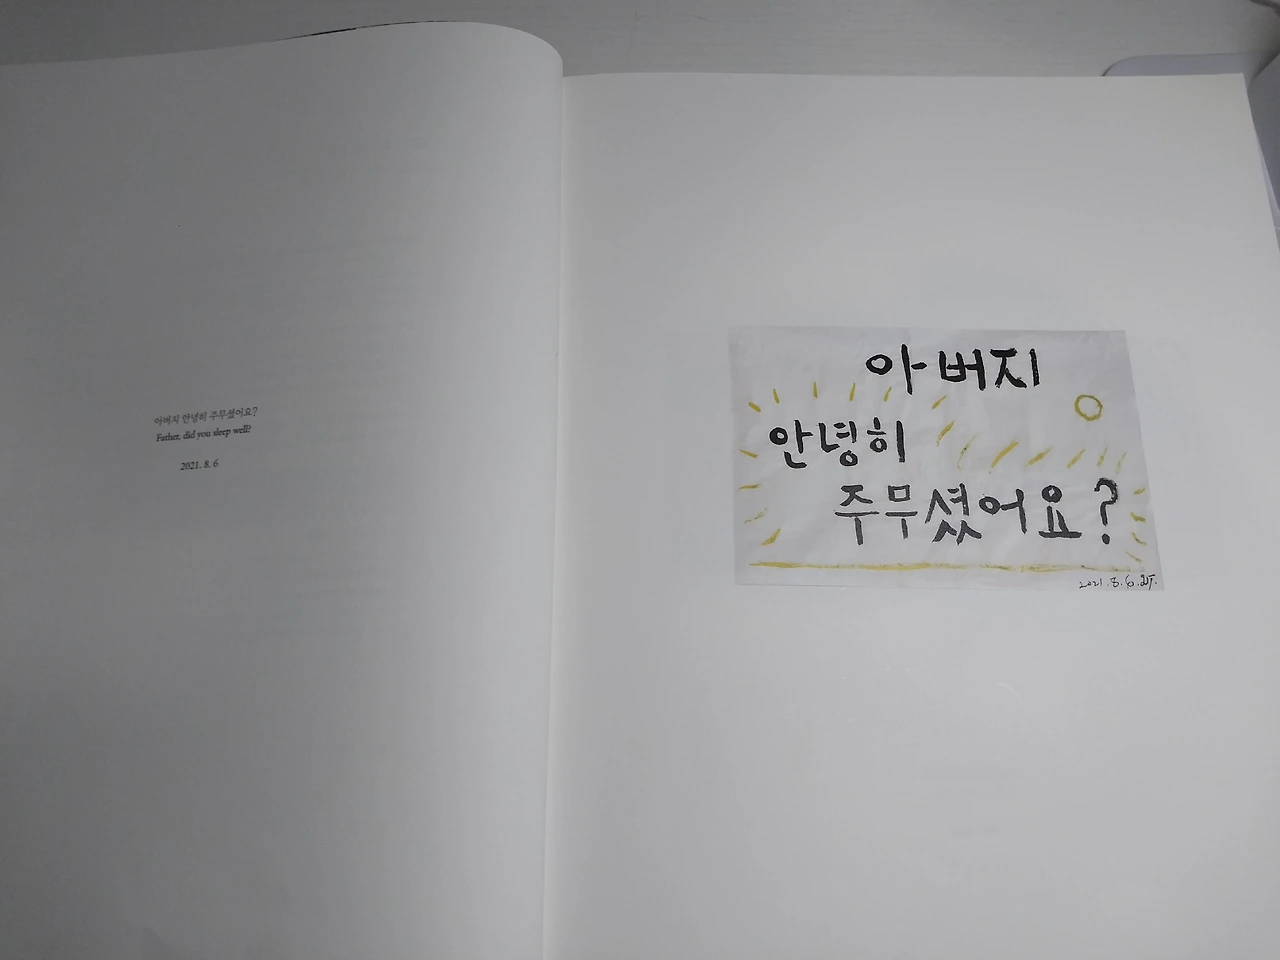 아버지 안녕히 주무셨어요?
Father, did you sleep well?
2021. 8. 6
아버지
안녕히
주무셨어요?
2021. 8. 6.